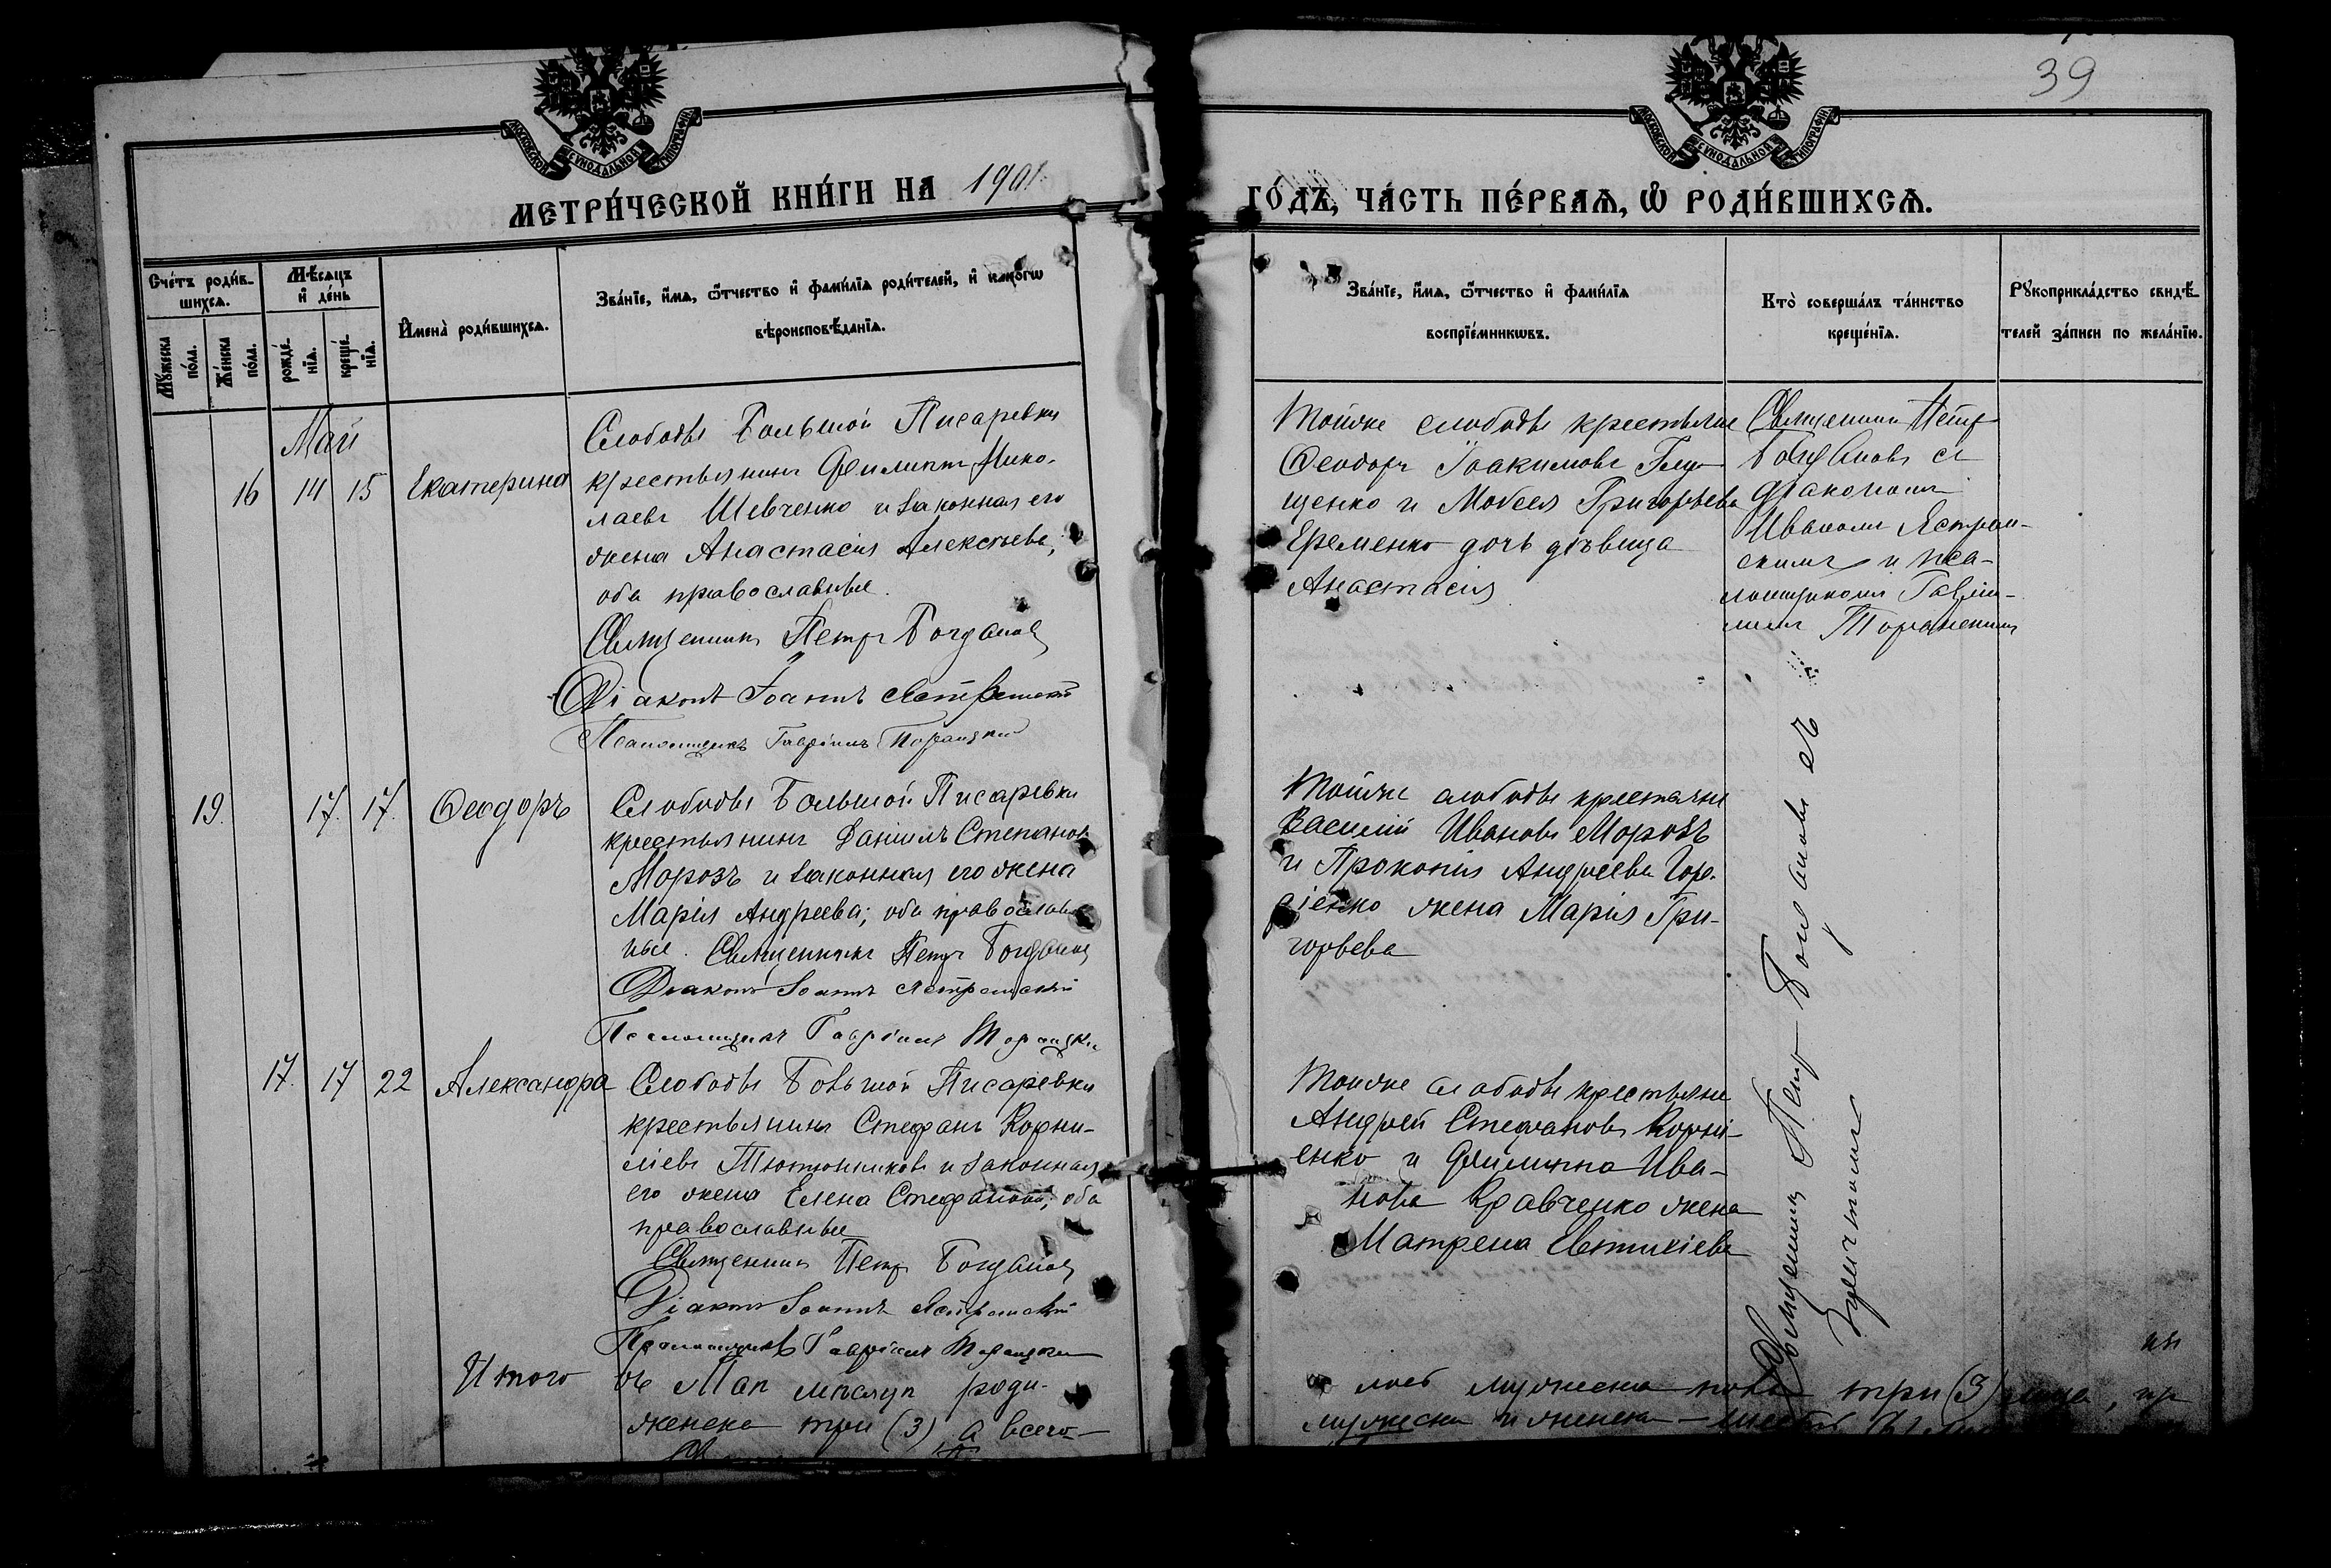 39
МОСКОВСКОЙ СѴНОДАЛЬНОЙ ТИПОГРАФІИ
МОСКОВСКОЙ СѴНОДАЛЬНОЙ ТИПОГРАФІИ
МЕТРИ́ЧЕСКОЙ КНИ́ГИ НА 1901
ГО́ДЪ, ЧА́СТЬ ПЕ́РВАѦ, Ѽ РОДИ́ВШИХСѦ.
Сче́тъ роди́в-
шихсѧ.
Мꙋ́жеска
по́ла.
Же́нска
по́ла.
Мѣ́сѧцъ
и҆ де́нь
рожде́-
нїѧ.
креще́-
нїѧ.
И҆мена̀ роди́вшихсѧ.
Зва́нїе, и҆́мѧ, ѻ҆́тчество и҆ фами́лїѧ роди́телей, и҆ како́гѡ
вѣроисповѣ́данїѧ.
Зва́нїе, и҆́мѧ, ѻ҆́тчество и҆ фами́лїѧ
воспрїе́мникѡвъ.
Кто̀ соверша́лъ та́инство
креще́нїѧ.
Рꙋкоприкла́дство свидѣ́-
телей за́писи по жела́нїю.
Май
16 14 15 Екатерина
Слободы Большой Писаревки
крестьянинъ Филиппъ Нико-
лаевъ Шевченко и законная его
жена Анастасія Алексѣева,
оба православные.
Священникъ Петръ Богдановъ
Діаконъ Іоаннъ Ястремскій
Псаломщикъ Гавріилъ
Тойже слободы крестьяне
Ѳеодоръ Іоакимовъ
щенко и Моѵсея Григорьева
Еременко дочь дѣвица
Анастасія
Священникъ Петръ
Богдановъ съ
діакономъ
Иваномъ Ястрем-
скимъ и пса-
ломщикомъ Гаврі-
иломъ
19. 17. 17. Ѳеодоръ
Слободы Большой Писаревки
крестьянинъ Даніилъ Степановъ
Морозъ и законная его жена
Марія Андреева; оба православ-
ные. Священникъ Петръ Богдановъ
Діаконъ Іоаннъ Ястремскій
Псаломщикъ Гавріилъ
Тойже слободы крестьяне
Василій Ивановъ Морозъ
и Прокопія Андреева Гор-
діенко жена Марія Гри-
горьева
17. 17 22 Александра
Слободы Большой Писаревки
крестьянинъ Стефанъ Корни-
ліевъ Тютюнниковъ и законная
его жена Елена Стефанова; оба
православные
Священникъ Петръ Богдановъ
Діаконъ Іоаннъ Ястремскій
Псаломщикъ Гавріилъ
Тойже слободы крестьяне
Андрей Стефановъ Корні-
енко и Филиппа Ива-
нова Кравченко жена
Матрена Евтихіева
Священникъ Петръ Богдановъ съ
причтомъ
Итого въ Маѣ мѣсяцѣ роди-
лось мужеска пола три (3)
женска три (3) а всего
мужеска и женска